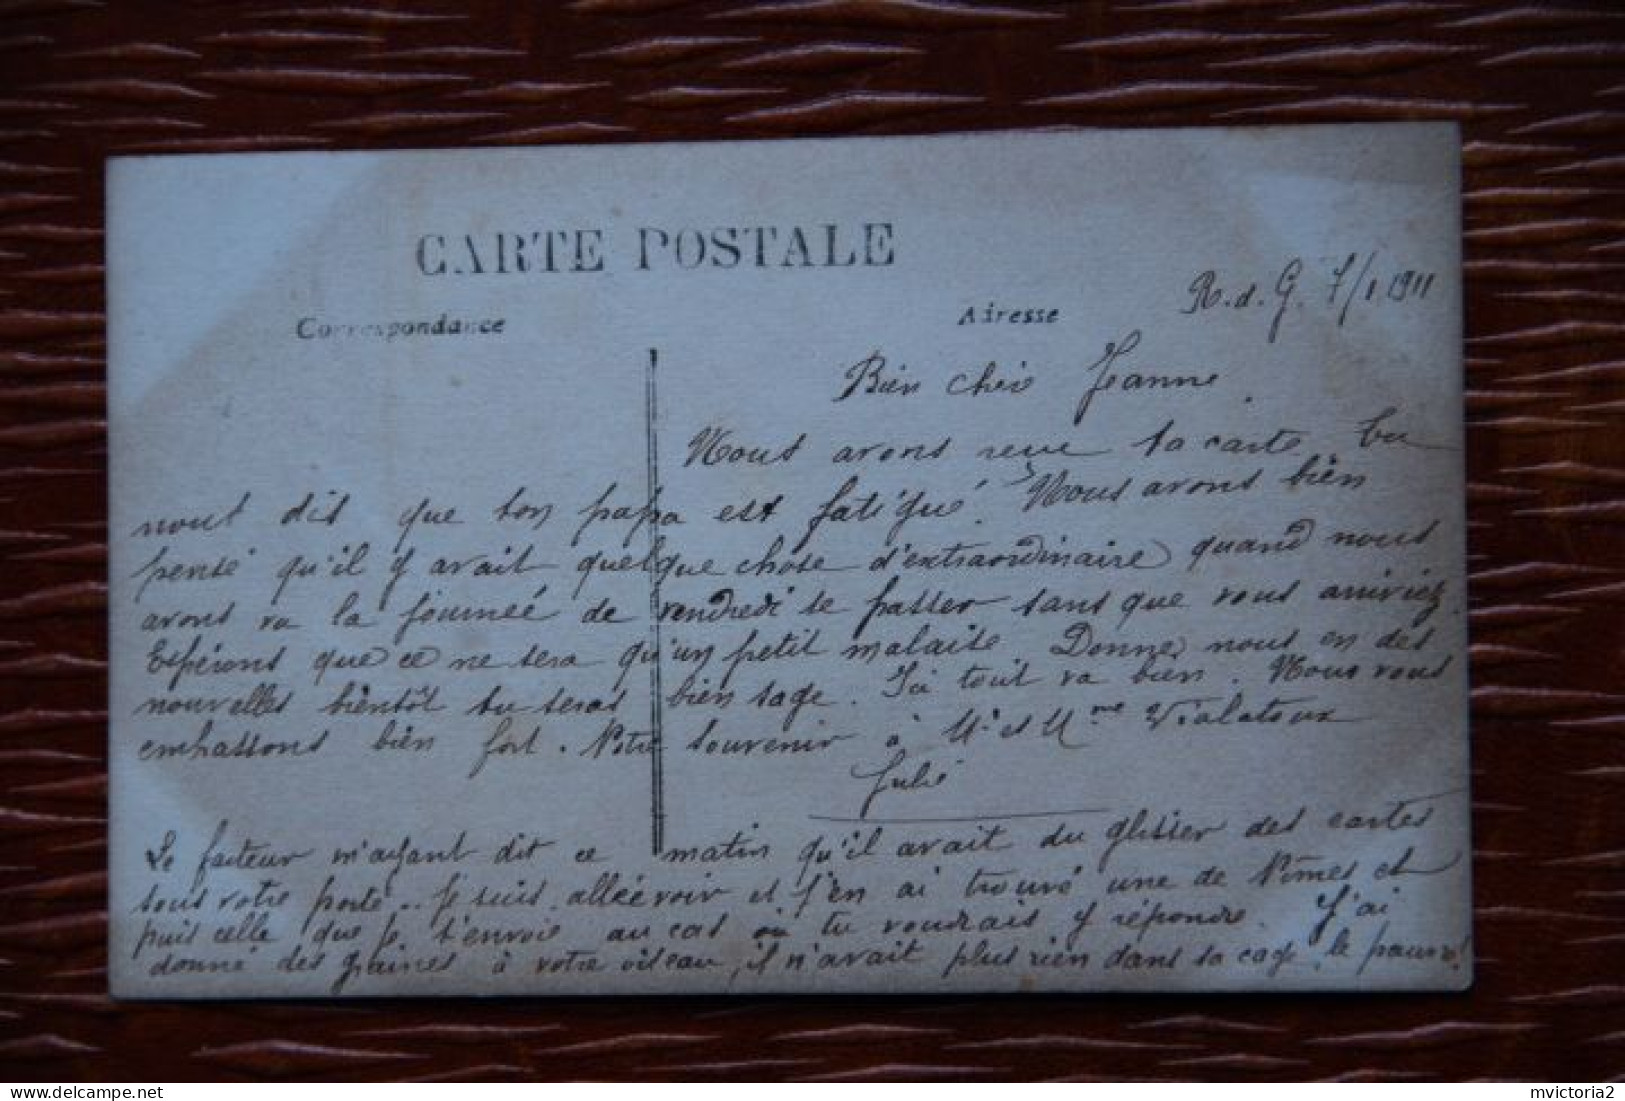 CARTE POSTALE
Correspondance
Adresse
R. d. G. 7/1 1911
Bien chère Jeanne,
Nous avons reçu ta carte. Tu
nous dis que ton papa est fatigué. Nous avons bien
pensé qu'il y avait quelque chose d'extraordinaire quand nous
avons vu la journeé de vendredi se passer sans que vous arriviez.
Espérons que ce ne sera qu'un petit malaise. Donne nous en des
nouvelles bientôt tu seras bien sage. Ici tout va bien. Nous vous
embrassons bien fort. Notre souvenir à Mr et Mme Vialatoux
Julie
Le facteur m'ayant dit ce matin qu'il avait du glisser des cartes
sous votre porte.. Je suis alleé voir et j'en ai trouvé une de Nîmes et
puis celle que je t'envoie au cas où tu voudrais y répondre. J'ai
donné des graines à votre oiseau, il n'avait plus rien dans sa cage, le pauvre!
mvictoria2